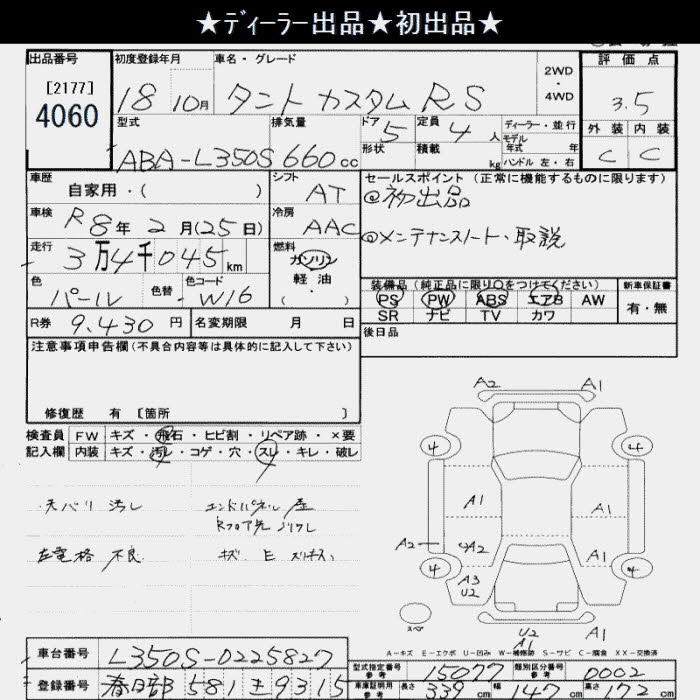 ★ディーラー出品★初出品★
出品番号 初度登録年月 車名・グレード 2WD・4WD 評価点
[2177] 4060 18 10月 タント カスタム RS 3.5
型式 排気量 ドア 定員 ディーラー・並行 外装 内装
ABA-L350S 660cc 5 4人 モデル年式 年 C C
形状 積載 kg ハンドル 左・右
車歴 シフト セールスポイント (正常に機能するものに限ります)
自家用・( ) AT @初出品
車検 R8年2月(25日) 冷房 AAC
@メンテナンスノート、取説
走行 3万4千045km 燃料 ガソリン 軽油 ・ ( )
色 パール 色替 色コード W16
装備品(純正品に限り○をつけてください) 新車保証書
PS PW ABS エアB AW 有・無
SR ナビ TV カワ
R券 9,430円 名変期限 月 日
後日品
注意事項申告欄(不具合内容等は具体的に記入して下さい)
修復歴 有 [箇所 ]
検査員 FW キズ・飛石・ヒビ割・リペア跡・×要
記入欄 内装 キズ・汚レ・コゲ・穴・スレ・キレ・破レ
天バリ 汚レ エンドパネル
左電格 不良 キズ
A2 A1
4 4
A1 A1
A2 A2 A1
4 4
A3
U2
スペア U2
A1
A-キズ E-エクボ U-凹み W-補修跡 S-サビ C-腐食 XX-交換済
車台番号 L350S-0225827
型式指定番号 参考 15077 類別区分番号 参考 0002
登録番号 春日部 581 ± 9315
車庫証明用 参考 長さ 339cm 幅 147cm 高さ 172cm